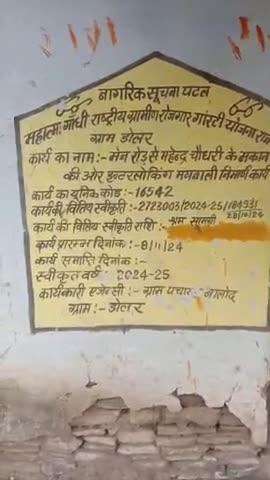 नागरिक सूचना पटल
महात्मा गांधी राष्ट्रीय ग्रामीण रोजगार गारंटी योजना
ग्राम डोलर
कार्य का नाम :- मेन रोड़ से महेन्द्र चौधरी के मकान
की ओर इन्टरलोकिंग मयनाली निर्माण कार्य
कार्य का यूनिक कोड :- 16542
कार्य की वित्तिय स्वीकृति :- 2723003/2024-25/184931
28/10/24
कार्य की वित्तिय स्वीकृति राशि :- श्रम सामग्री
कार्य प्रारम्भ दिनांक :- 8/11/24
कार्य समाप्ति दिनांक :-
स्वीकृत वर्ष 2024-25
कार्यकारी एजेन्सी :- ग्राम पंचायत
ग्राम :- डोलर